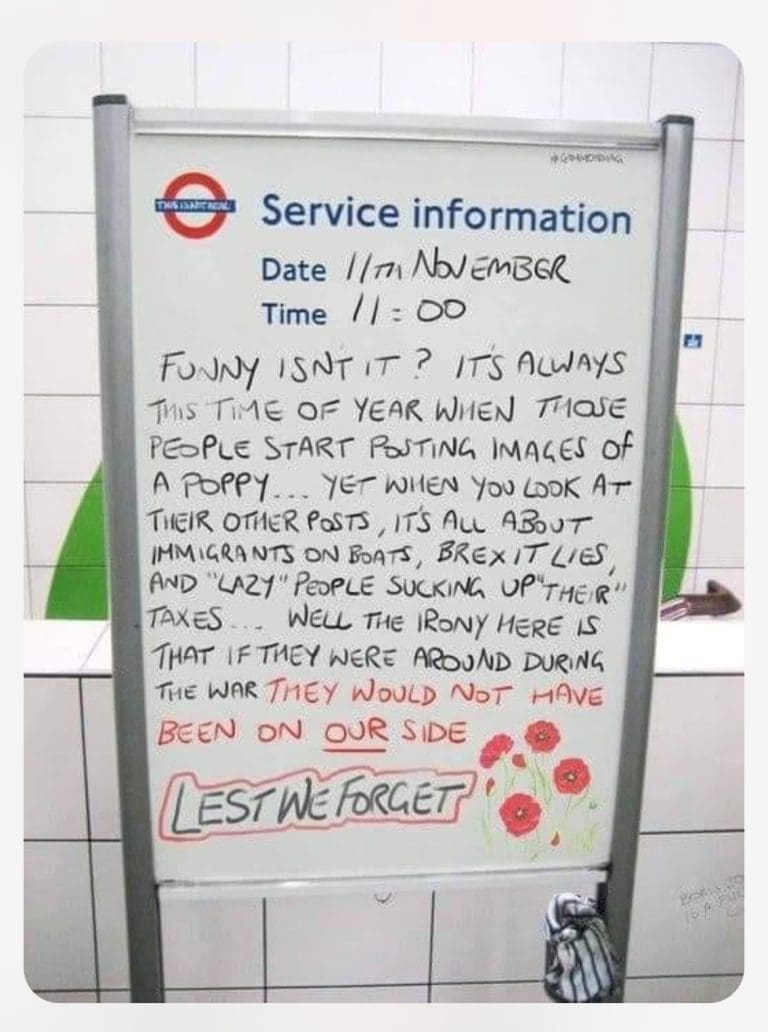 #GAMMONWAG
THIS IS NOT REAL
Service information
Date 11TH NOVEMBER
Time 11:00
FUNNY ISN'T IT? IT'S ALWAYS
THIS TIME OF YEAR WHEN THOSE
PEOPLE START POSTING IMAGES OF
A POPPY... YET WHEN YOU LOOK AT
THEIR OTHER POSTS, IT'S ALL ABOUT
IMMIGRANTS ON BOATS, BREXIT LIES,
AND "LAZY" PEOPLE SUCKING UP "THEIR"
TAXES... WELL THE IRONY HERE IS
THAT IF THEY WERE AROUND DURING
THE WAR THEY WOULD NOT HAVE
BEEN ON OUR SIDE
LEST WE FORGET
BORIS
IS A